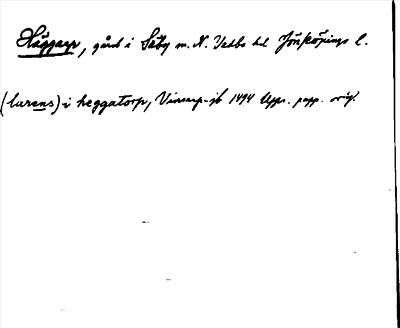 Häggarp, gård i Säby sn. N. Vedbo hd Jönköpings l.
(laurens) i heggatorp, Vinsarp-jb 1494 Upps. papp. orig.